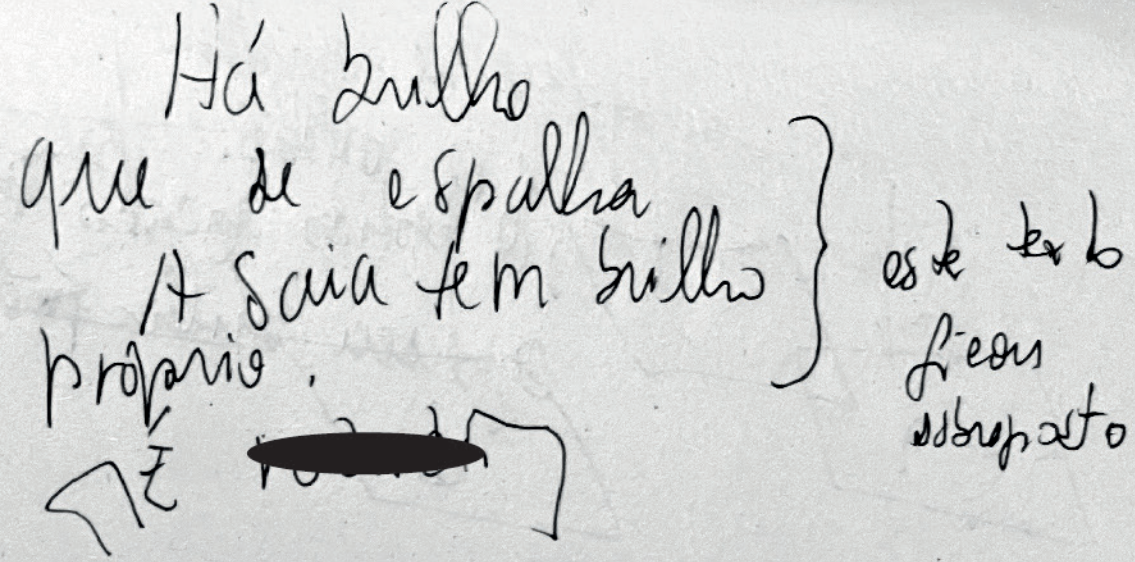 Há brilho
que se espalha
A saia tem brilho
próprio.
É
este texto
ficou
sobreposto